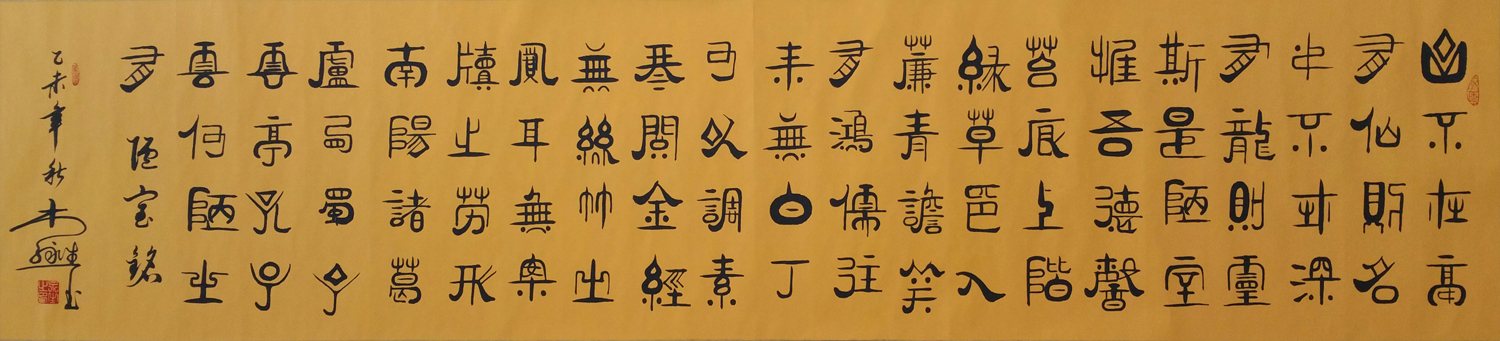 山不在高
有仙則名
水不在深
有龍則靈
斯是陋室
惟吾德馨
苔痕上階
緑草色入
簾青談笑
有鴻儒往
來無白丁
可以調素
琴閲金經
無絲竹之
亂耳無案
牘之勞形
南陽諸葛
盧西蜀子
雲亭孔子
雲何陋之
有 陋室銘
乙未年秋